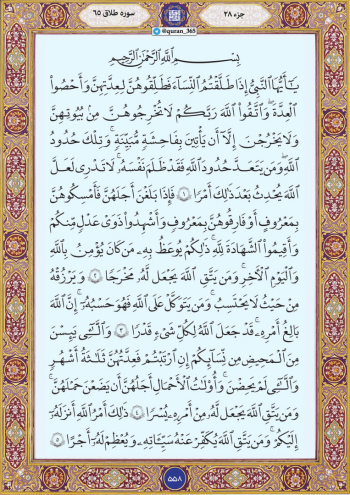 جزء ۲۸
@quran_365
سوره طلاق ۶۵
بِسْمِ ٱللَّهِ ٱلرَّحْمَٰنِ ٱلرَّحِيمِ
يَٰٓأَيُّهَا ٱلنَّبِيُّ إِذَا طَلَّقْتُمُ ٱلنِّسَآءَ فَطَلِّقُوهُنَّ لِعِدَّتِهِنَّ وَأَحْصُوا۟
ٱلْعِدَّةَ ۖ وَٱتَّقُوا۟ ٱللَّهَ رَبَّكُمْ ۖ لَا تُخْرِجُوهُنَّ مِنۢ بُيُوتِهِنَّ
وَلَا يَخْرُجْنَ إِلَّآ أَن يَأْتِينَ بِفَٰحِشَةٍ مُّبَيِّنَةٍ ۚ وَتِلْكَ حُدُودُ
ٱللَّهِ ۚ وَمَن يَتَعَدَّ حُدُودَ ٱللَّهِ فَقَدْ ظَلَمَ نَفْسَهُۥ ۚ لَا تَدْرِى لَعَلَّ
ٱللَّهَ يُحْدِثُ بَعْدَ ذَٰلِكَ أَمْرًا ۝١ فَإِذَا بَلَغْنَ أَجَلَهُنَّ فَأَمْسِكُوهُنَّ
بِمَعْرُوفٍ أَوْ فَارِقُوهُنَّ بِمَعْرُوفٍ وَأَشْهِدُوا۟ ذَوَىْ عَدْلٍ مِّنكُمْ
وَأَقِيمُوا۟ ٱلشَّهَٰدَةَ لِلَّهِ ۚ ذَٰلِكُمْ يُوعَظُ بِهِۦ مَن كَانَ يُؤْمِنُ بِٱللَّهِ
وَٱلْيَوْمِ ٱلْءَاخِرِ ۚ وَمَن يَتَّقِ ٱللَّهَ يَجْعَل لَّهُۥ مَخْرَجًا ۝٢ وَيَرْزُقْهُ
مِنْ حَيْثُ لَا يَحْتَسِبُ ۚ وَمَن يَتَوَكَّلْ عَلَى ٱللَّهِ فَهُوَ حَسْبُهُۥٓ ۚ إِنَّ ٱللَّهَ
بَٰلِغُ أَمْرِهِۦ ۚ قَدْ جَعَلَ ٱللَّهُ لِكُلِّ شَىْءٍ قَدْرًا ۝٣ وَٱلَّٰٓـِٔى يَئِسْنَ
مِنَ ٱلْمَحِيضِ مِن نِّسَآئِكُمْ إِنِ ٱرْتَبْتُمْ فَعِدَّتُهُنَّ ثَلَٰثَةُ أَشْهُرٍ
وَٱلَّٰٓـِٔى لَمْ يَحِضْنَ ۚ وَأُو۟لَٰتُ ٱلْأَحْمَالِ أَجَلُهُنَّ أَن يَضَعْنَ حَمْلَهُنَّ ۚ
وَمَن يَتَّقِ ٱللَّهَ يَجْعَل لَّهُۥ مِنْ أَمْرِهِۦ يُسْرًا ۝٤ ذَٰلِكَ أَمْرُ ٱللَّهِ أَنزَلَهُۥٓ
إِلَيْكُمْ ۚ وَمَن يَتَّقِ ٱللَّهَ يُكَفِّرْ عَنْهُ سَيِّـَٔاتِهِۦ وَيُعْظِمْ لَهُۥٓ أَجْرًا ۝٥
۵۵۸